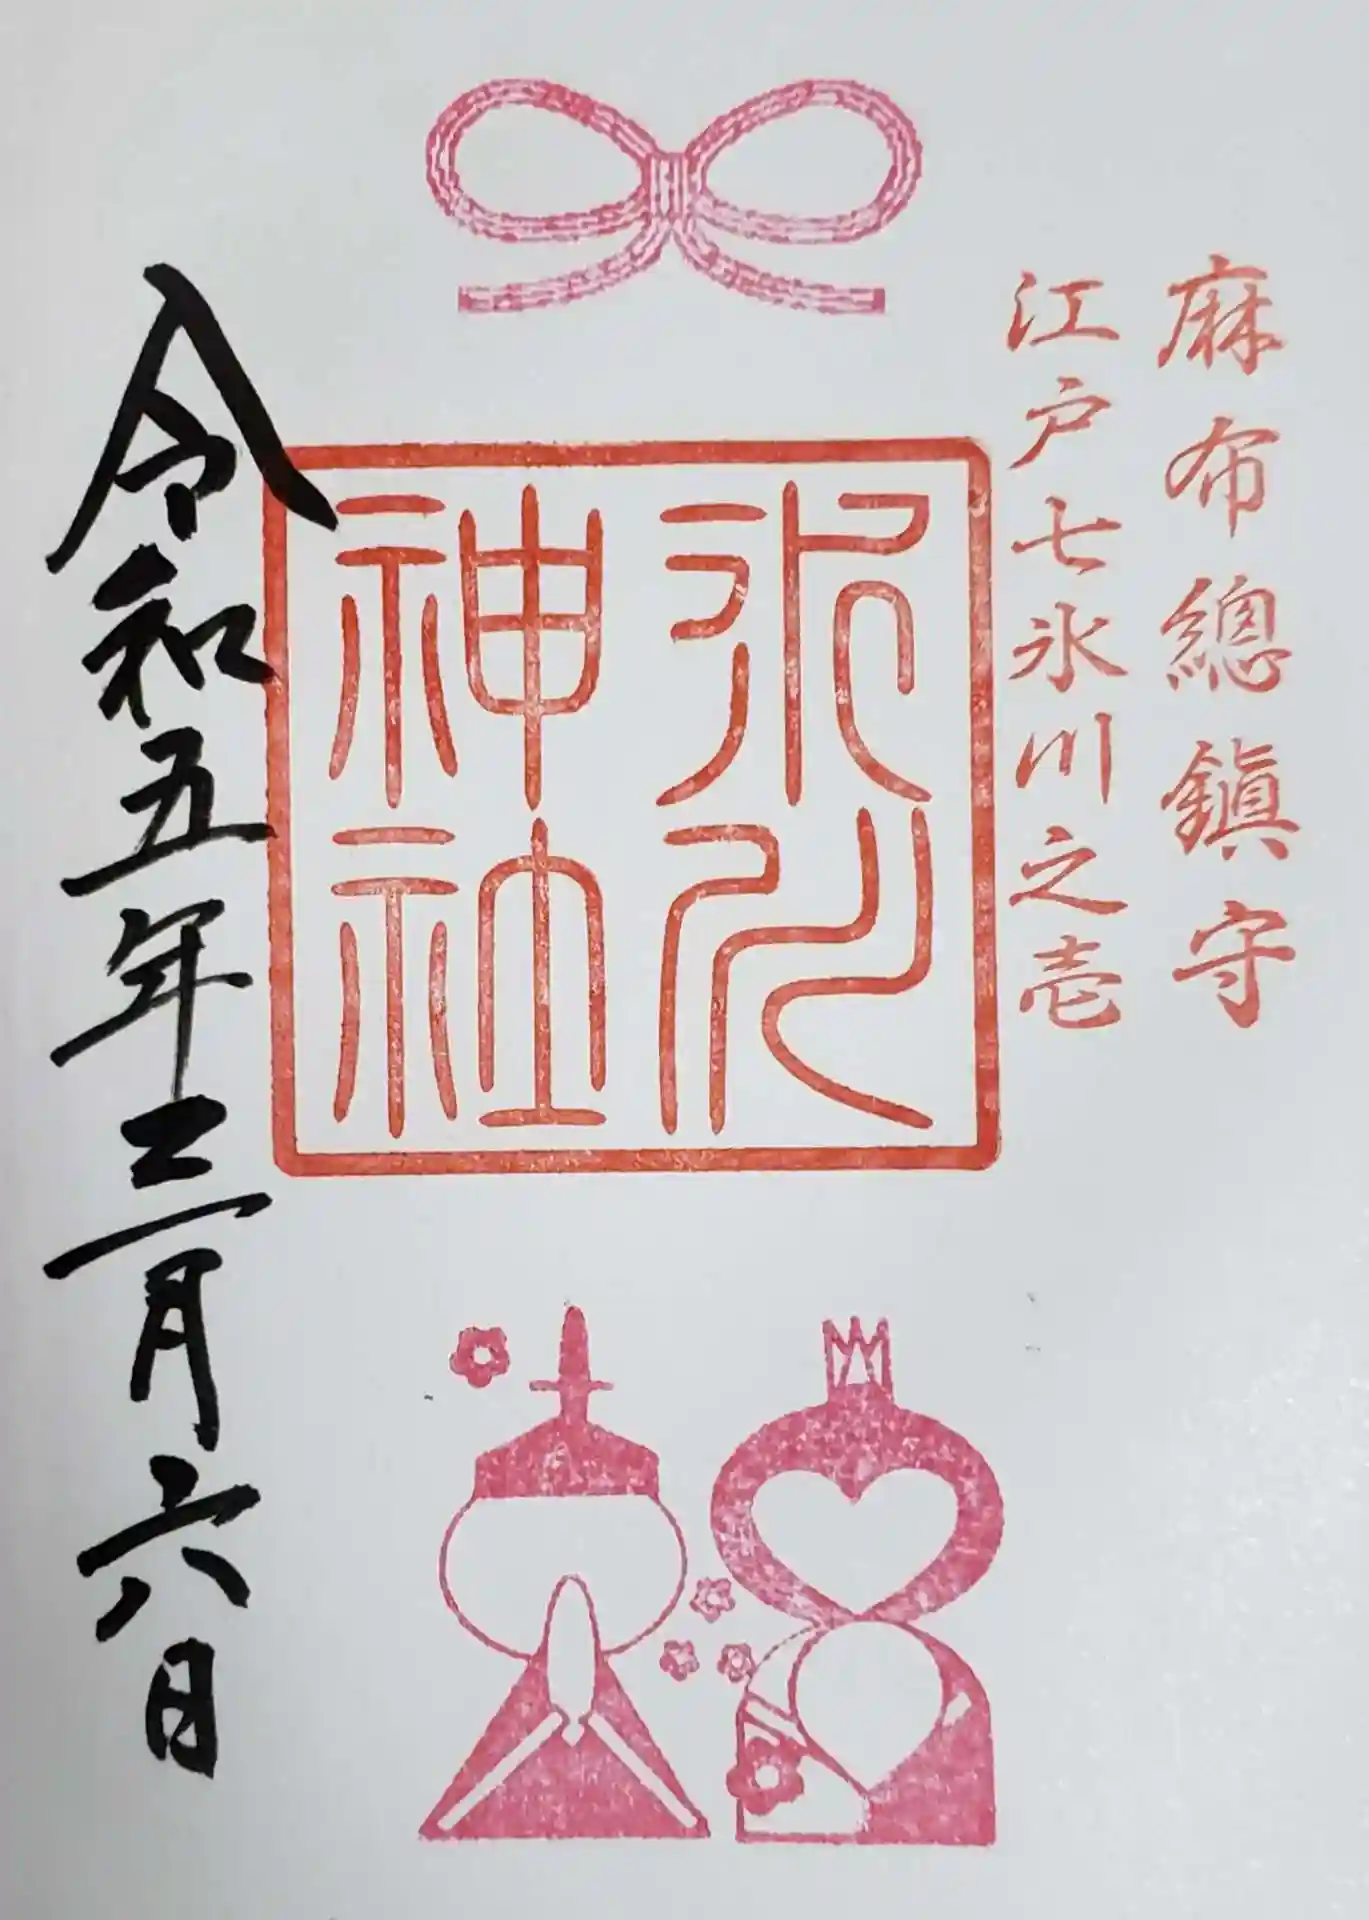 麻布總鎭守
江戸七氷川之壱
氷川
神社
令和五年三月六日